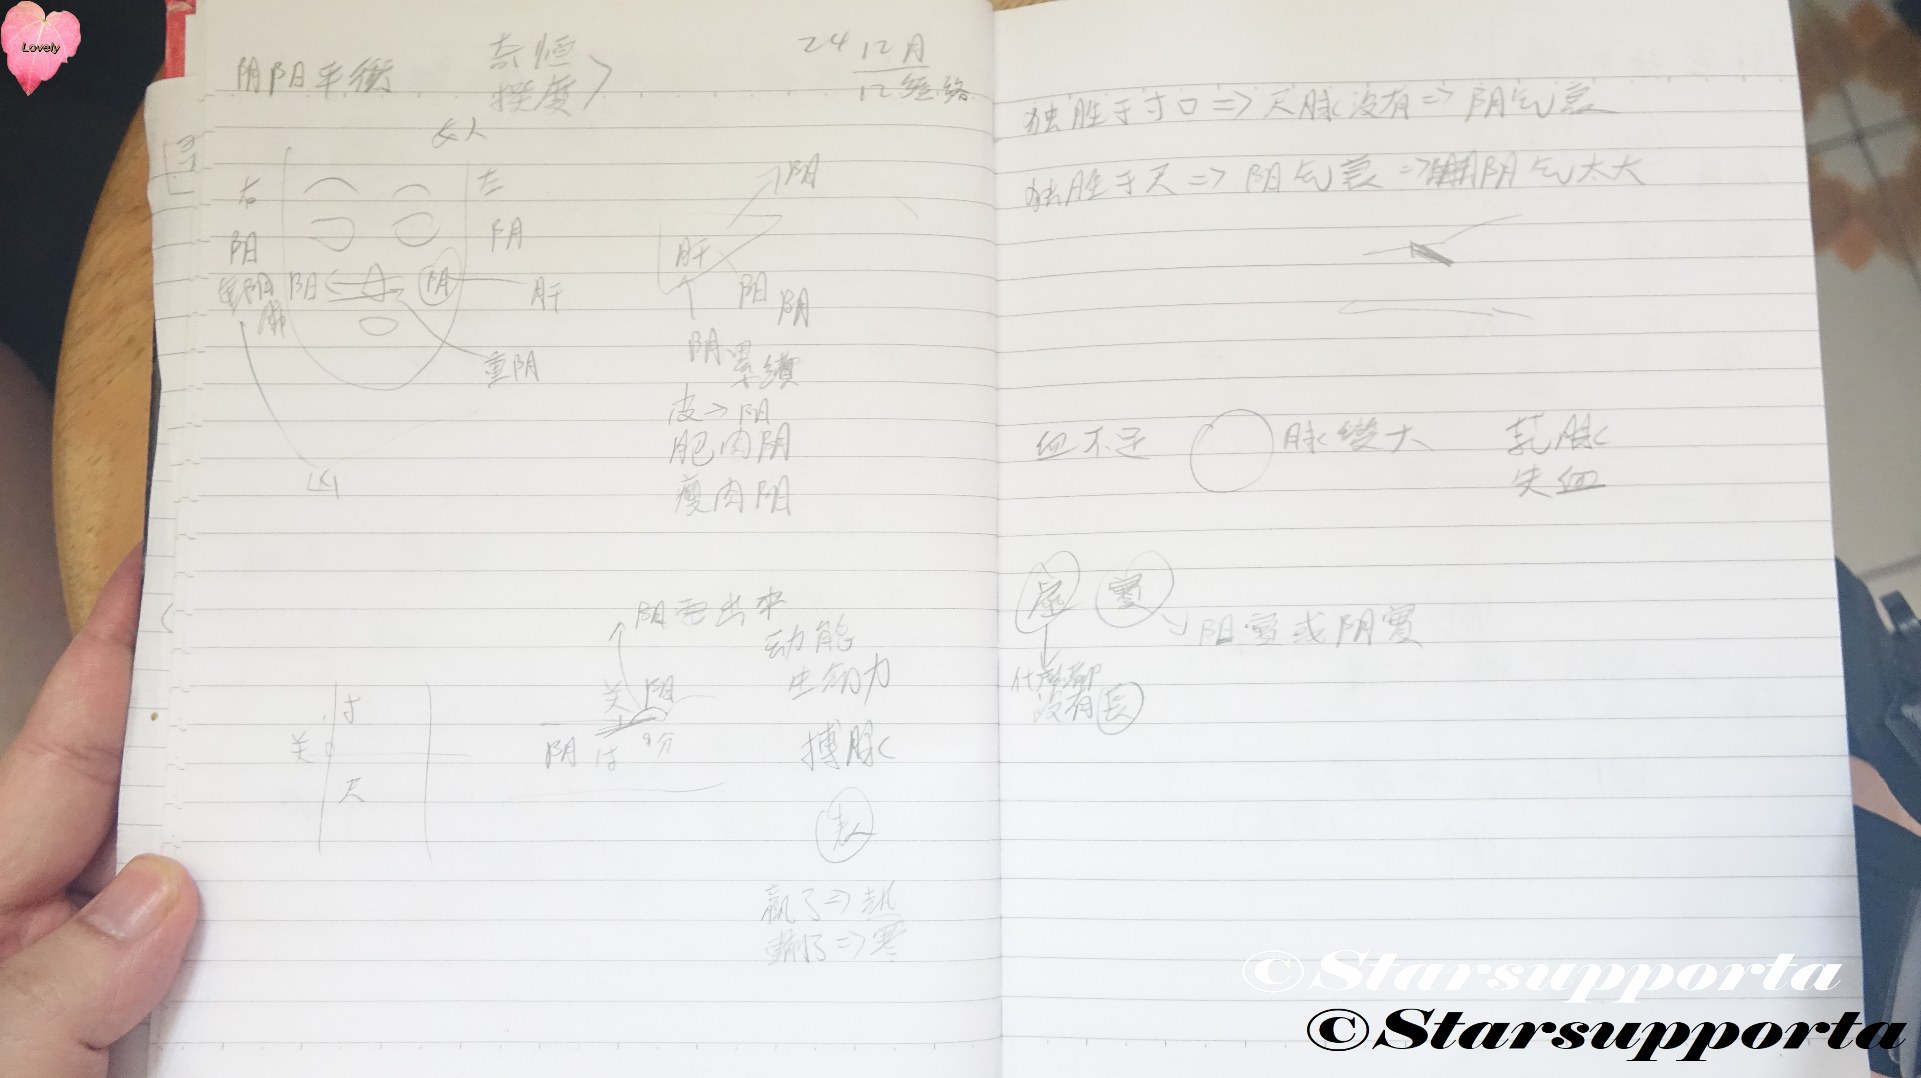 Lovely
阴阳平衡
奇恒
揆度
24 12月
12经络
女人
右
左
阳
阴
阳
阴
肝
重阴
凶
阴
肝
阳 阴
阴累積
皮→阳
肥肉阴
瘦肉阳
阴要出来
动能
生命力
关 阴
阴 寸 9分
搏脉
寸
关
尺
赢了=>热
輸了=>寒
独胜于寸口=>尺脉没有=>阴气衰
独胜于尺=>阳气衰=>阴气太大
血不足
脉變大
芤脉
失血
虛 實
阳實或阴實
没有長
©Starsupporta
©Starsupporta